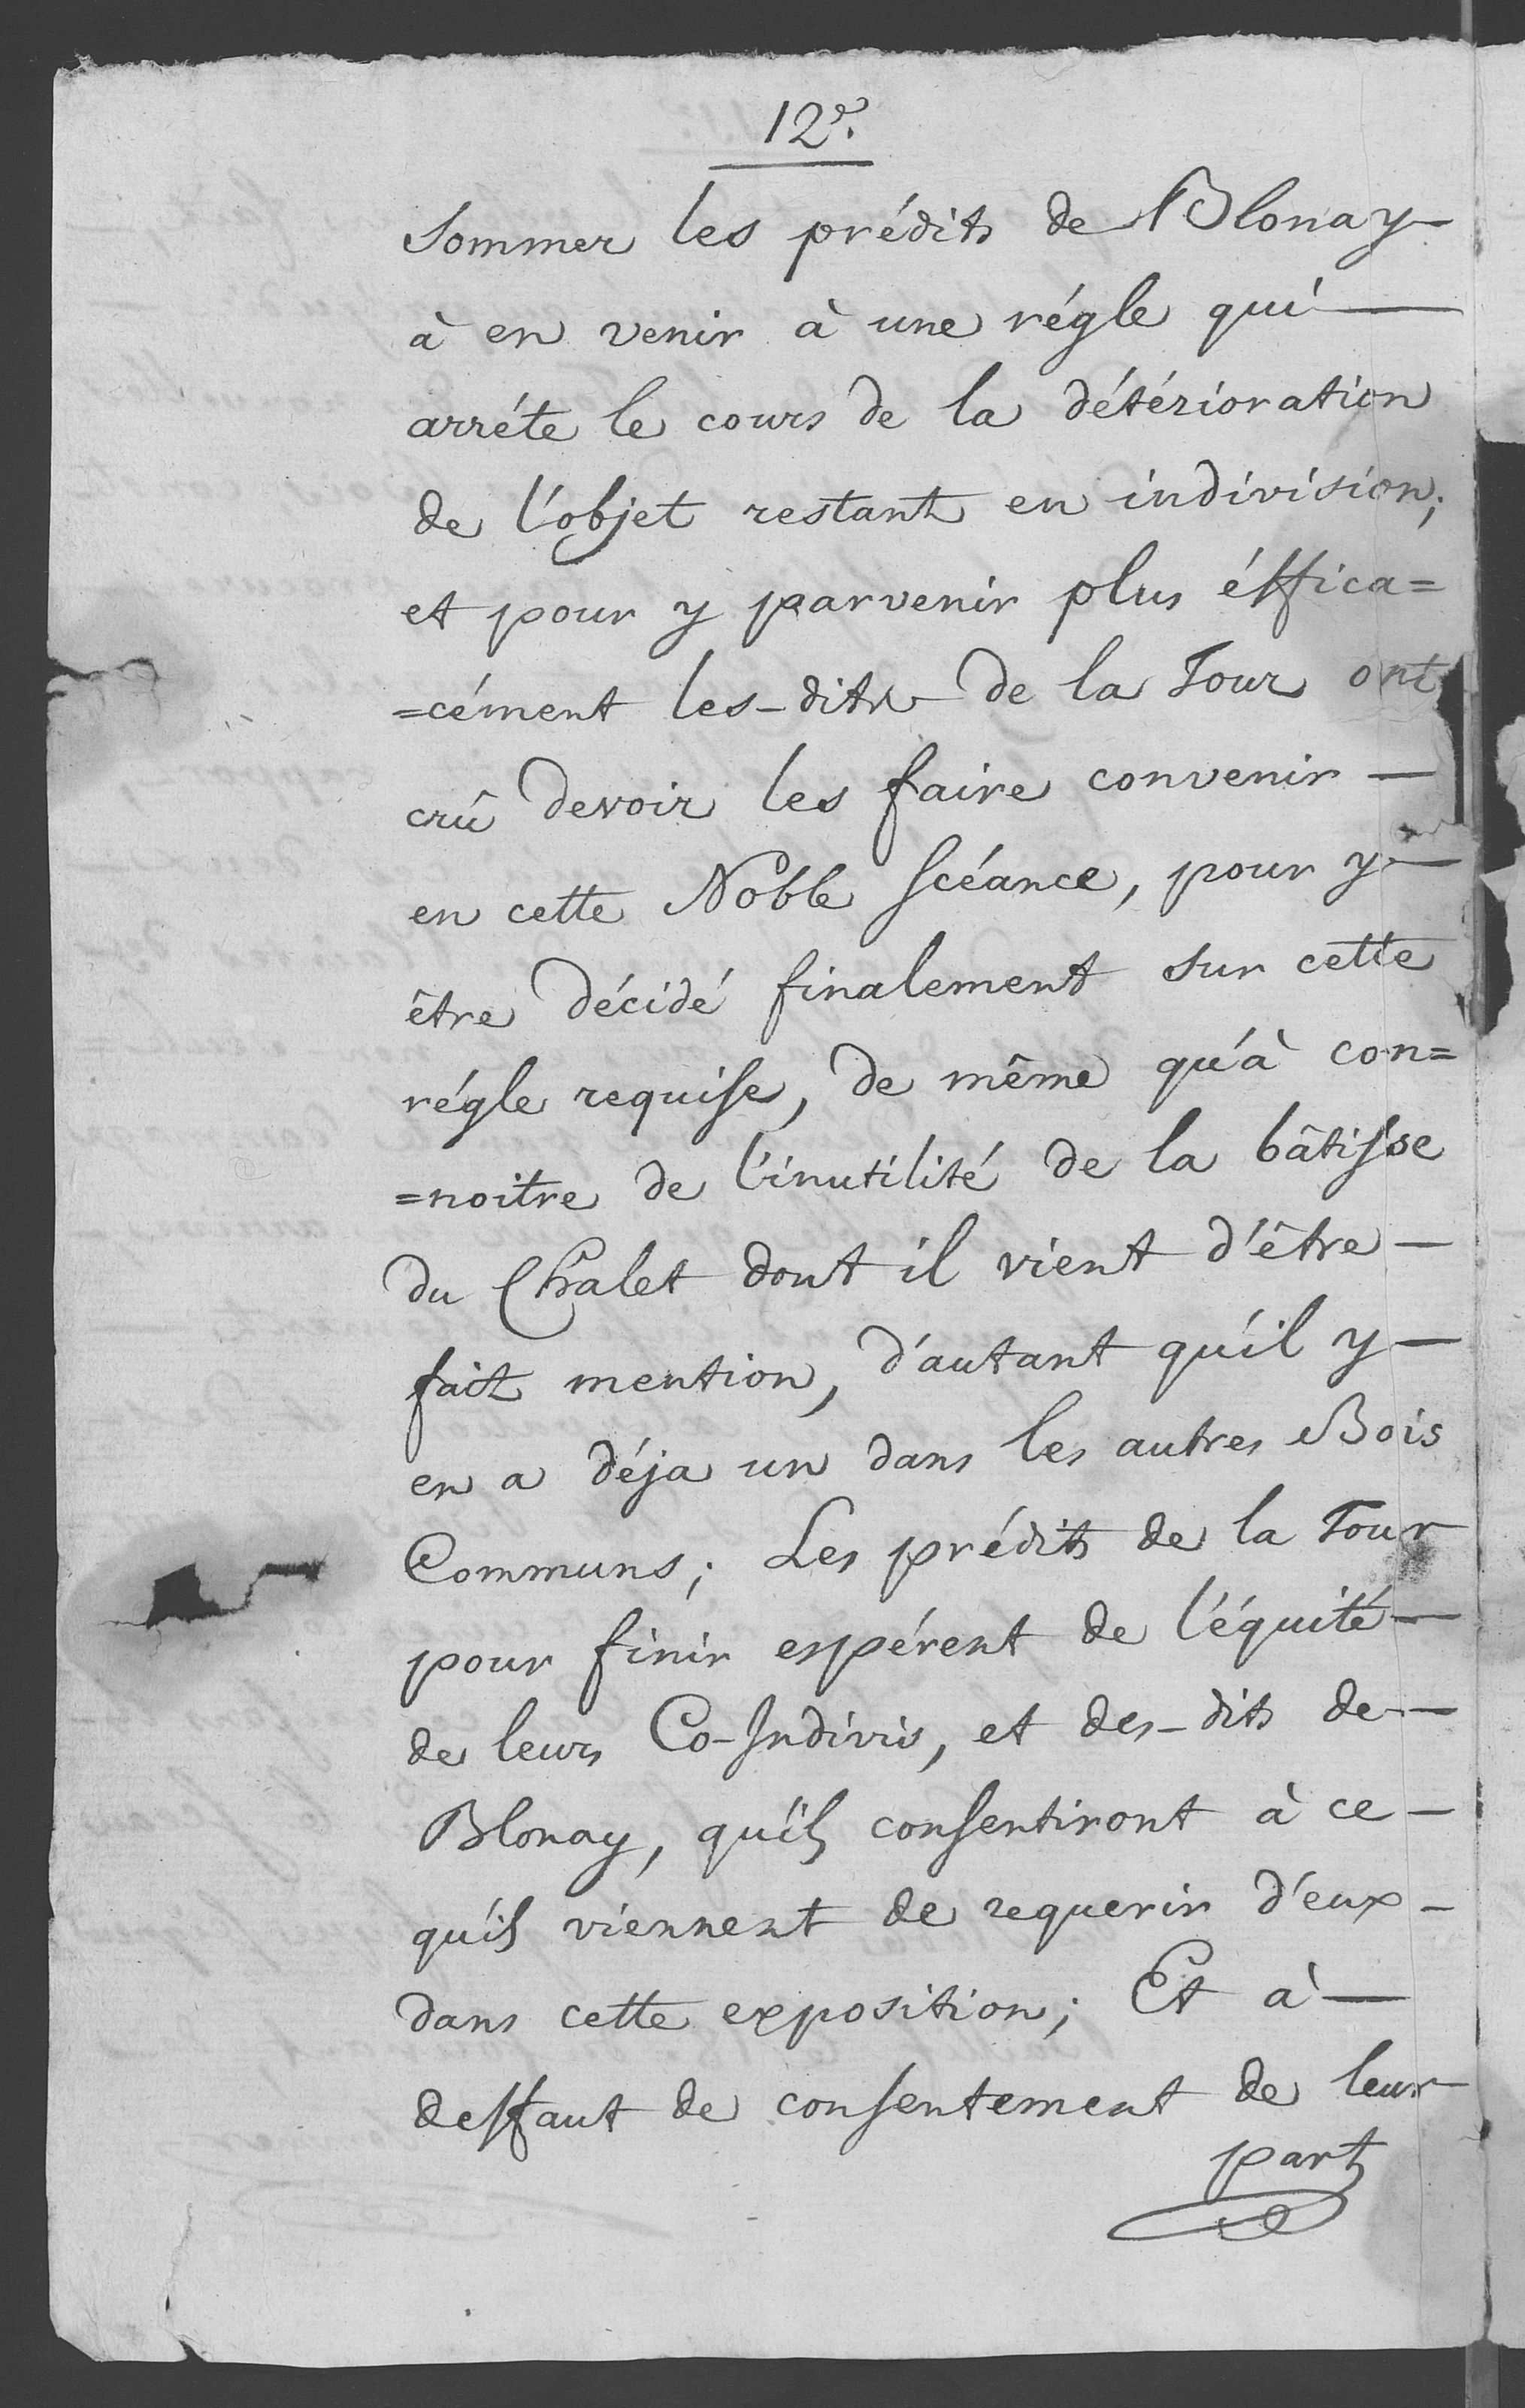 12e.
Sommer les prédits de Blonay
à en venir à une régle qui
arréte le cours de la détérioration
de l'objet restant en indivision;
et pour y parvenir plus éffica=
=cément les-dits de la Tour ont
crû devoir les faire convenir
en cette Noble scéance, pour y
être décidé finalement sur cette
régle requise, de même qu'à con=
=noitre de l'inutilité de la bâtisse
du Châlet dont il vient d'être
fait mention, d'autant qu'il y
en a déja un dans les autres Bois
Communs; Les prédits de la Tour
pour finir espérent de l'équité
de leurs Co-Indivis, et des-dits de
Blonay, qu'ils consentiront à ce
qu'ils viennent de requerir d'eux
dans cette exposition; Et à
deffaut de consentement de leur
part